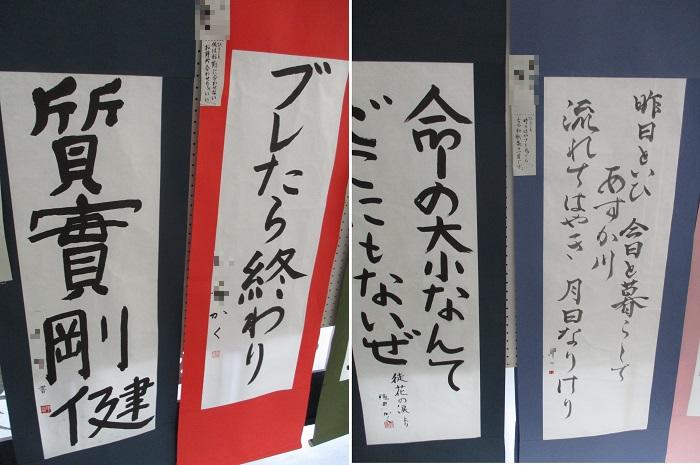 質實剛健
書
ブレたら終わり
かく
命の大小なんて
どこにもないぜ
徒花の涙より
昨日といひ 今日と暮らして
あすか川
流れてはやき 月日なりけり